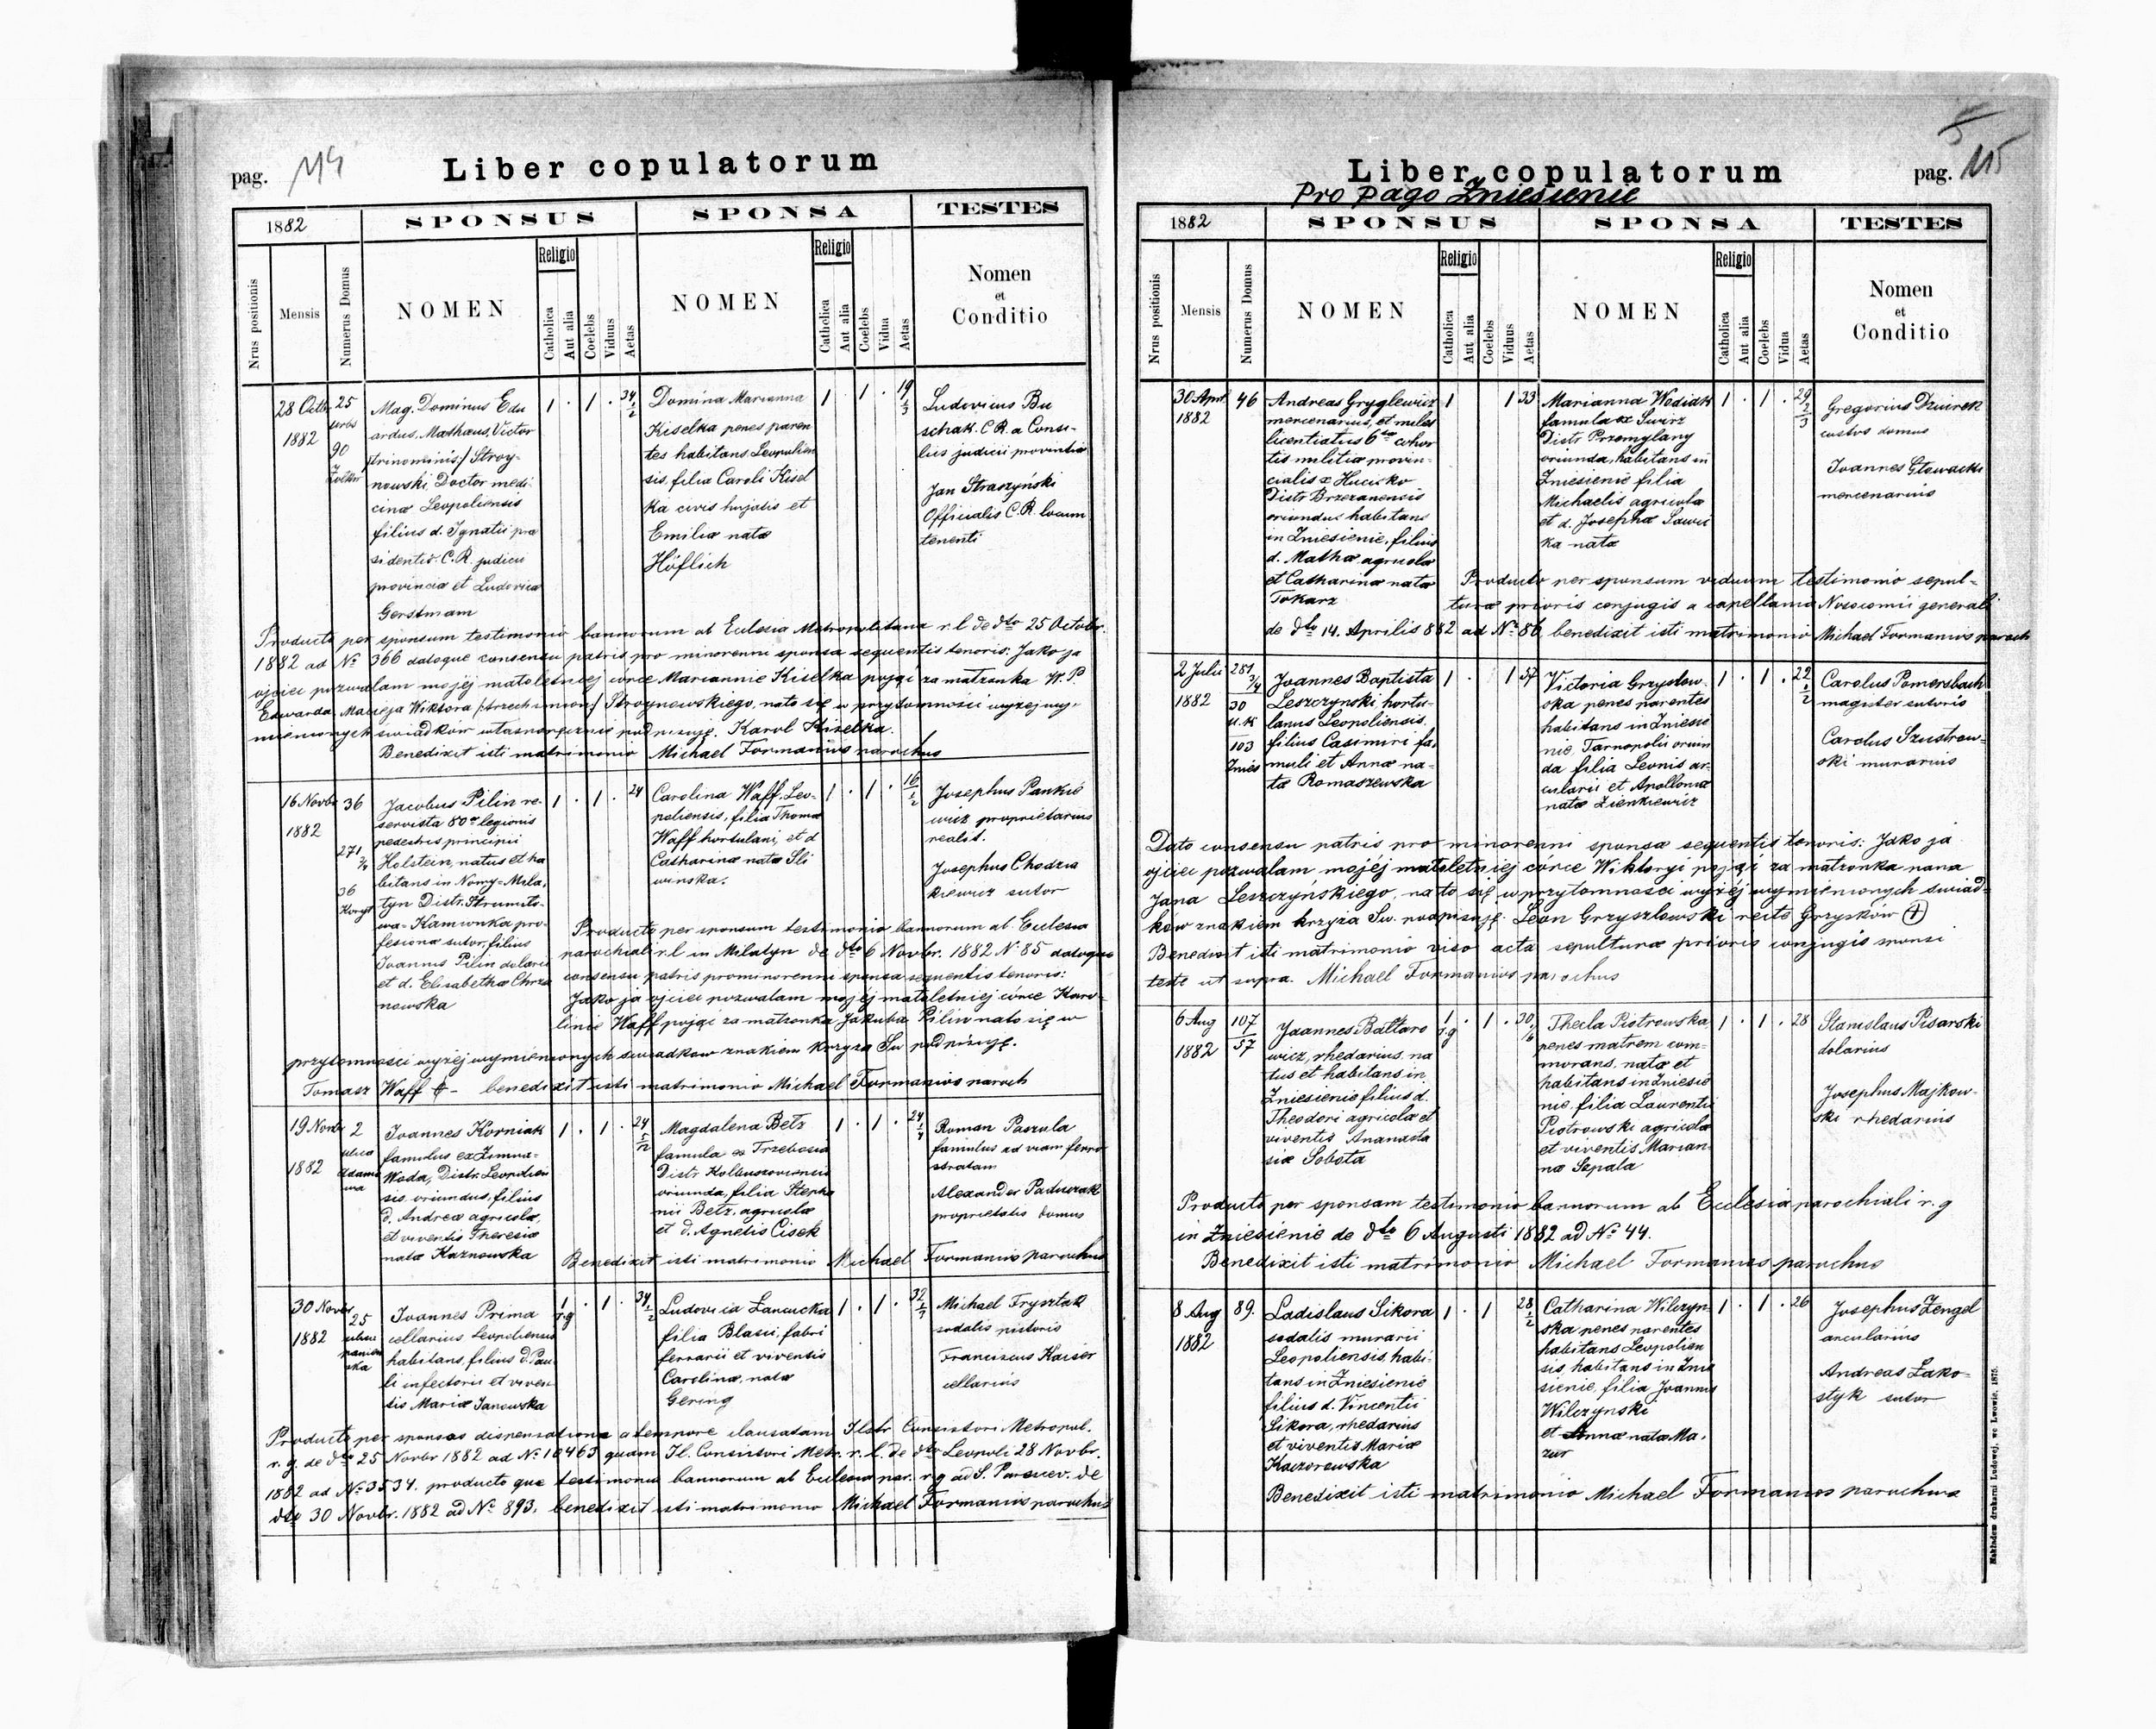 pag. 114
Liber copulatorum
1882
SPONSUS
SPONSA
TESTES
Nrus positionis
Mensis
Numerus Domus
NOMEN
Religio
Catholica
Aut alia
Coelebs
Viduus
Aetas
NOMEN
Religio
Catholica
Aut alia
Coelebs
Vidua
Aetas
Nomen
et
Conditio
28 Octb
1882
25
urbs
90
Mag. Dominus Edu
ardus, Mathæus, Victor
/trinominis/ Stroy-
nowski, Doctor medi
cinæ Leopoliensis
filius d. Ignatii præ
sidentis C. R. judicii
provinciæ et Ludovica
Gerstmam
1 . 1 . 34 1/2
Domina Marianna
Kiselka penes paren
tes habitans, Leopolien
sis, filia Caroli Kisel
ka civis hujatis et
Emiliæ natæ
Höflich
1 . 1 . 19 1/3
Ludovicus Bu
schak. C. R. a Consi-
liis judicii provintiæ
Jan Straszyński
Officialis C. R. locum
tenenti
Producto per sponsum testimonio bannorum ab Eclesia Metropolitana r. l de dto 25 Octobr.
1882 ad No 366 datoque consensu patris pro minorenni sponsa sequentis tenoris: Jako ja
ojciec pozwalam mojéj małoletniej córce Mariannie Kiselka pojąć za małżonka W. P.
Edwarda Macieja Wiktora /trzech imion/ Stroynowskiego, na to się w przytomności wyżej wy-
mienionych świadków własnoręcznie podpisuję. Karol Kiselka.
Benedixit isti matrimonio Michael Formanios parochus
16 Novbr
1882
36
271
3/4
36
Jacobus Pilin re-
servista 80æ legionis
pedestris principii
Holstein, natus et ha
bitans in Nowy-Mila,
tyn Distr. Strumilo-
wa-Kamionka pro-
fesione sutor, filius
Joannis Pilin dolarii
et d. Elisabethæ Chrza
nowska
1 . 1 . 24
Carolina Waff. Leo-
poliensis, filia Thomæ
Waff hortulani, et d
Catharinæ natæ Sli
winska.
1 . 1 . 16 1/2
Josephus Pankie
wicz proprietarius
realit.
Josephus Chodzia
kiewicz sutor
Producto per sponsum testimonio bannorum ab Ecclesia
parochiali r. l in Milatyn de dto 6 Novbr. 1882 No 85 datoque
consensu patris pro minorenni sponsa sequentis tenoris:
Jako ja ojciec pozwalam mojéj małoletniej córce Karo-
linie Waff pojąć za małżonka Jakuba Pilin na to się w
przytomności wyżéj wymienionych świadków znakiem krzyża Sw podpisuję.
Tomasz Waff + - benedixit isti matrimonio Michael Formanios paroch
19 Novb
1882
2
ulica
Adamo
wa
Joannes Korniak
famulus ex Zimna-
Woda, Distr. Leopolien
sis, oriundus, filius
d. Andreæ agricolæ,
et viventis Theresiæ
natæ Kaznowska
1 . 1 . 24
Magdalena Betz
famula ex Trzebosia
Distr Kolbuszoviensis
oriunda, filia Stepha
nii Betz. agricolæ
et d. Agnetis Cisek
1 . 1 . 24 1/4
Roman Paszula
famulus ad viam ferro
stratam
Alexander Paduszak
proprietatis domus
Benedixit isti matrimonio Michael Formanios parochus
30 Novbr
1882
25
Joannes Prima
cellarius Leopoliensis
habitans, filius d. Pau
li infectorii et viven
tis Mariæ Janowska
1 r.g . 1 . 34 1/2
Ludovicia Łancucka
filia Blasii, fabri
ferrarii et viventis
Carolinæ, natæ
Gering
1 . 1 . 32
Michael Frysztak
sodalis pistoris
Franciscus Kaiser
cellarius
Producto per sponsos dispensatione a tempore clausatam Ilstr Consistori Metropol.
r. g. de dto 25 Novbr 1882 ad No 10463 quam Il. Consistori Metr. r. l. de dto Leopoli 28 Novbr.
1882 ad No 3534. producto que testimonio bannorum ab Ecclesia par. r. g ad S. Parascev. de
dto 30 Novbr. 1882 ad No 893. benedixit isti matrimonio Michael Formanios parochus
Liber copulatorum
pag. 115
5
Pro pago Zniesienie
1882
SPONSUS
SPONSA
TESTES
Nrus positionis
Mensis
Numerus Domus
NOMEN
Religio
Catholica
Aut alia
Coelebs
Viduus
Aetas
NOMEN
Religio
Catholica
Aut alia
Coelebs
Vidua
Aetas
Nomen
et
Conditio
30 Apr.
1882
46
Andreas Gryglewicz
mercenarius, et miles
licentiatus 6to cohor
tis militiæ provin-
cialis x Hucisko
Distr Brzezanensis
oriundus habitans
in Zniesienie, filius
d. Mathæ agricolæ
et Catharinæ natæ
Tokarz
1 1 33
Marianna Wodiak
famula ex Swirz
Distr Przemyslany
oriunda, habitans in
Zniesienie filia
Michaelis agricolæ
et d. Josephæ Sawic
ka natæ
1 . 1 . 29 2/3
Gregorius Dzurek
custos domus
Joannes Głowacki
mercenarius
Producto per sponsum viduum testimonio sepul-
turæ prioris conjugis a capellania Nosocomii generali
de dto 14. Aprilis 882 ad No 86, benedixit isti matrimonio Michael Formanios paroch
2 Julii
1882
281
3/4
30
u.K
103
Znies
Joannes Baptista
Leszczynski, hortu-
lanus Leopoliensis.
filius Casimiri fa,
muli et Annæ na-
tæ Romaszewska
1 . 1 57
Victoria Grzyslow-
ska penes parentes
habitans in Zniesie
nie, Tarnopolii oriun
da filia Leonis ar-
cularii et Apolloniæ
natæ Zienkiewicz
1 . 1 . 22 1/2
Carolus Pomersbach
magister sutoris
Carolus Szustrow-
ski murarius
Dato consensu patris pro minorenni sponsa sequentis tenoris: Jako ja
ojciec pozwalam mojéj małoletniej córce Wiktoryi pojąć za małżonka pana
Jana Leszczyńskiego, na to się w przytomności wyżéj wymienionych świad-
ków znakiem krzyża Sw. podpisuję. Leon Grzyszlowski recte Grzysków (+)
Benedixit isti matrimonio viso acta sepulturæ prioris conjugis sponsi
teste ut supra. Michael Formanios parochus
6 Aug
1882
107
57
Joannes Baltaro
wicz, rhedarius, na
tus et habitans in
Zniesienie filius d.
Theodori agricolæ et
viventis Ananasta
siæ Sobota
1 r.g . 1 . 30
Thecla Piotrowska
penes matrem com-
morans, nata et
habitans in Zniesie
nie, filia Laurentii
Piotrowski agricolæ
et viventis Marian-
næ Sepala
1 . 1 . 28
Stanislaus Pisarski
dolarius
Josephus Majkow-
ski rhedarius
Producto per sponsam testimonio bannorum ab Ecclesia parochiali r. g
in Zniesienie de dto 6 Augusti 1882 ad No 44.
Benedixit isti matrimonio Michael Formanios parochus
8 Aug
1882
89.
Ladislaus Sikora
sodalis murarii
Leopoliensis, habi-
tans in Zniesienie
filius d. Vincentii
Sikora, rhedarius
et viventis Mariæ
Kaczorowska
1 . 1 28 1/2
Catharina Wilczyn-
ska penes parentes
habitans Leopolien
sis, habitans in Znie
sienie, filia Joannis
Wilczynski
et Annæ natæ Ma,
zur
1 . 1 . 26
Josephus Zengel
arcularius
Andreas Łako-
styk sutor
Benedixit isti matrimonio Michael Formanios parochus
Nakładem drukarni Ludowej, we Lwowie. 1875.